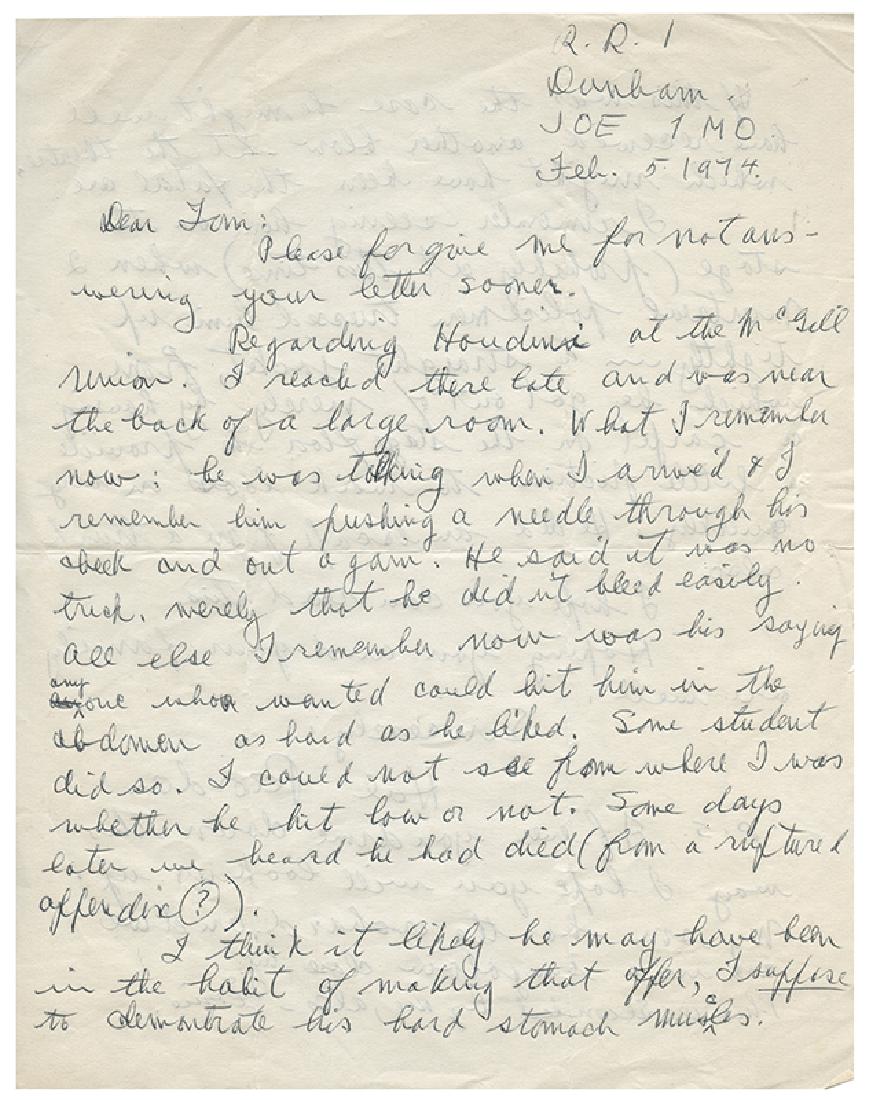 R. R. 1
Dunham.
JOE 1 MO
Feb. 5 1974.
Dear Tom:
Please forgive me for not ans-
wering your letter sooner.
Regarding Houdini at the McGill
Union. I reached there late and was near
the back of a large room. What I remember
now: he was talking when I arrived & I
remember him pushing a needle through his
cheek and out again. He said it was no
trick, merely that he didn't bleed easily.
All else I remember now was his saying
anyone who wanted could hit him in the
abdomen as hard as he liked. Some student
did so. I could not see from where I was
whether he hit low or not. Some days
later we heard he had died (from a ruptured
appendix (?)).
I think it likely he may have been
in the habit of making that offer, I suppose
to demontrate his hard stomach muscles.